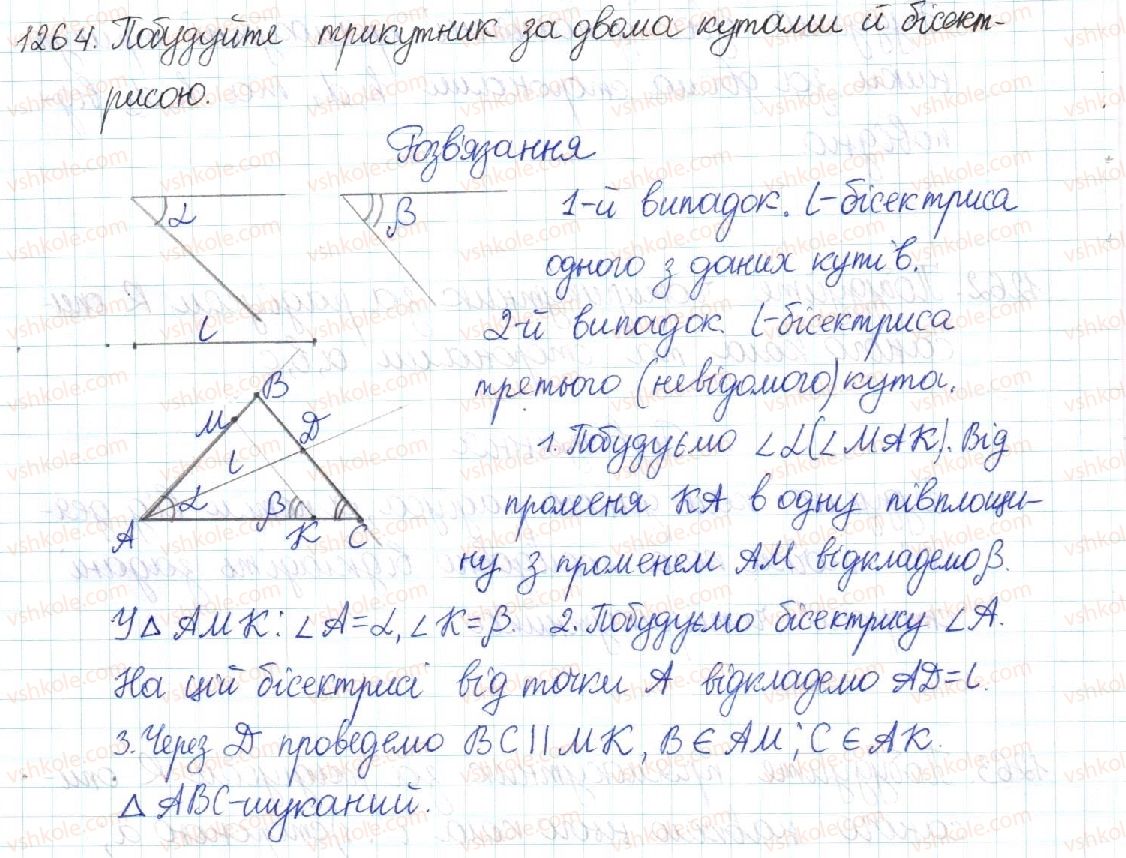 1264. Побудуйте трикутник за двома кутами й бісект-
рисою.
Розв'язання
α
β
1-й випадок. l-бісектриса
одного з даних кутів.
l
2-й випадок. l-бісектриса
третього (невідомого) кута.
B
M
D
l
α
β
A
K
C
1. Побудуємо ∠α(∠MAK). Від
променя KA в одну півплощи-
ну з променем AM відкладемо β.
У △ AMK: ∠A=α, ∠K=β. 2. Побудуємо бісектрису ∠A.
На цій бісектрисі від точки A відкладемо AD=l.
3. Через D проведемо BC || MK, B ∈ AM; C ∈ AK.
△ ABC-шуканий.